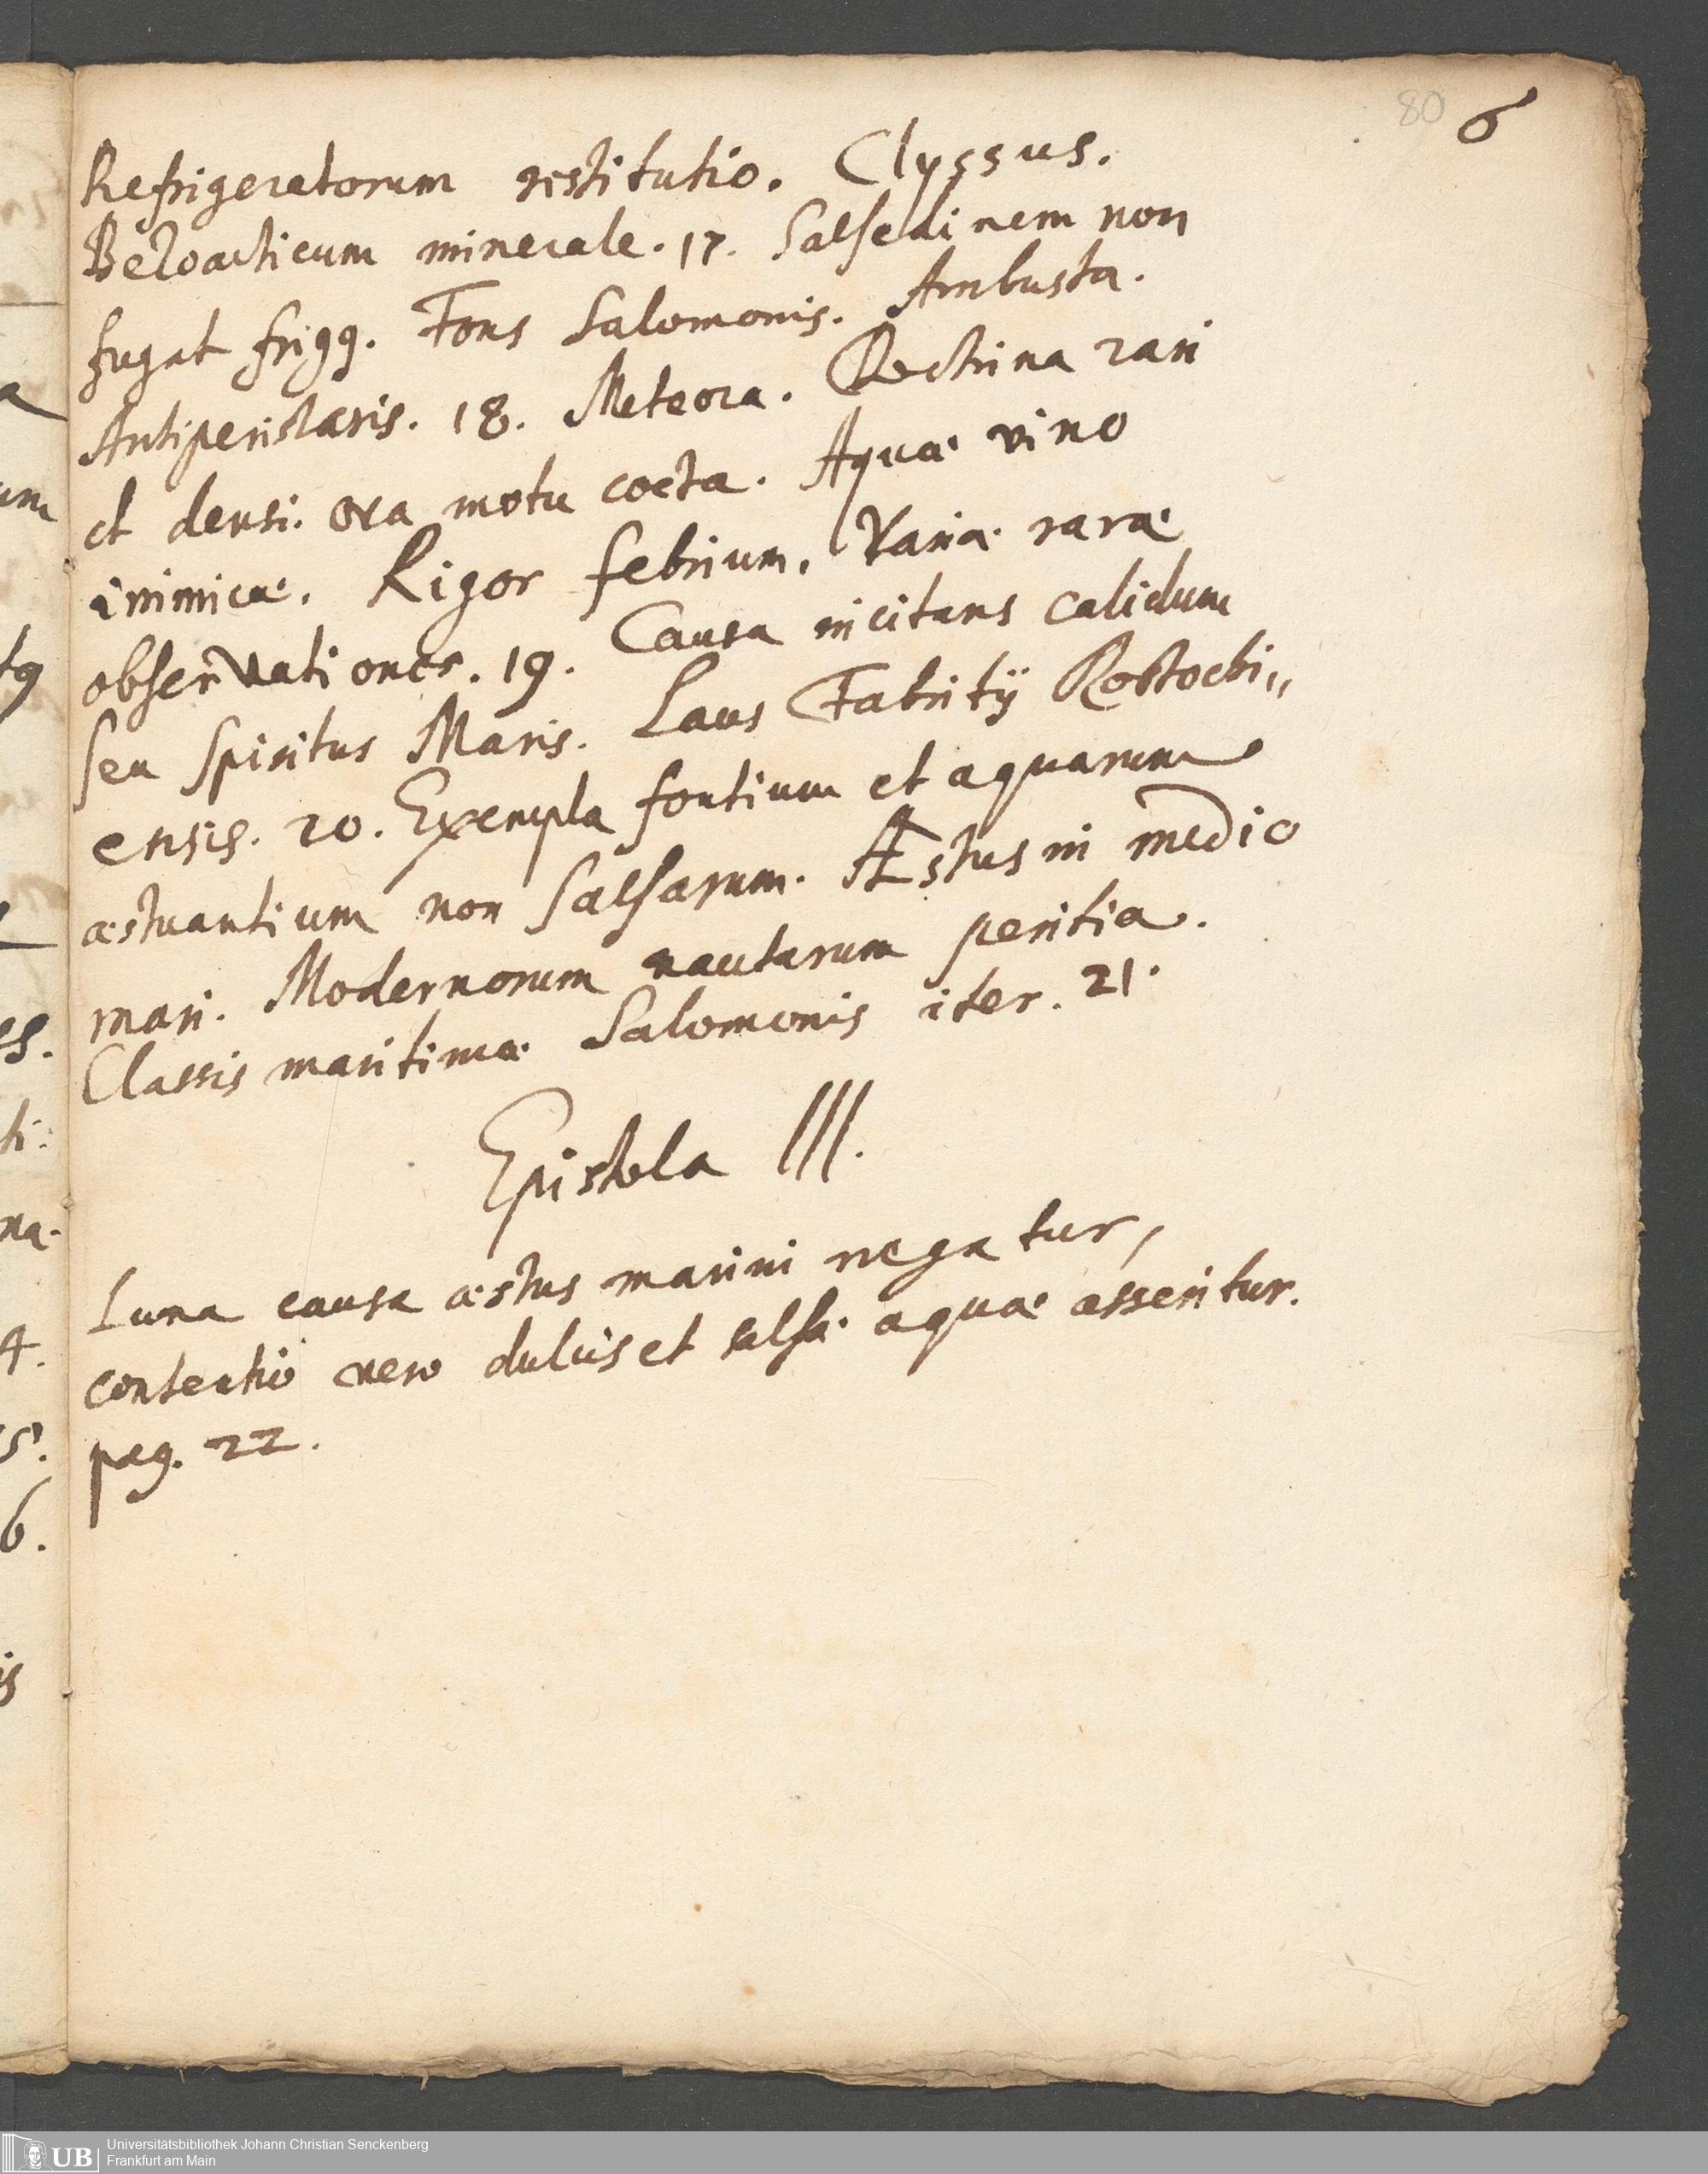 80 6
Refrigeratorum restitutio. Clyssus.
Bezoarticum minerale. 17. Salsedinem non
fugat frigg. Fons Salomonis. Ambusta.
Antiperistasis. 18. Meteora. Doctrina rari
et densi. ova motu cocta. Aquæ vino
inimicæ. Rigor febrium. Variæ raræ
observationes. 19. Causa incitans calidum
seu spiritus Maris. Laus Fabritij Rostochi„
ensis. 20. Exempla fontium et aquarum
æstuantium non salsarum. Æstus in medio
mari. Modernorum nautarum peritia.
Classis maritimæ Salomonis iter. 21.
Epistola III.
Luna causa æstus marini negatur,
contentio vero dulcis et salsæ aquæ asseritur.
pag. 22.
UB Universitätsbibliothek Johann Christian Senckenberg
Frankfurt am Main